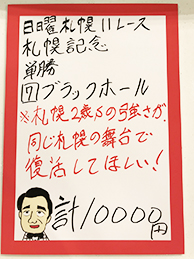 日曜札幌11レース
札幌記念
単勝
⑦ブラックホール
※札幌2歳Sの強さが、
同じ札幌の舞台で
復活してほしい!
計10000円